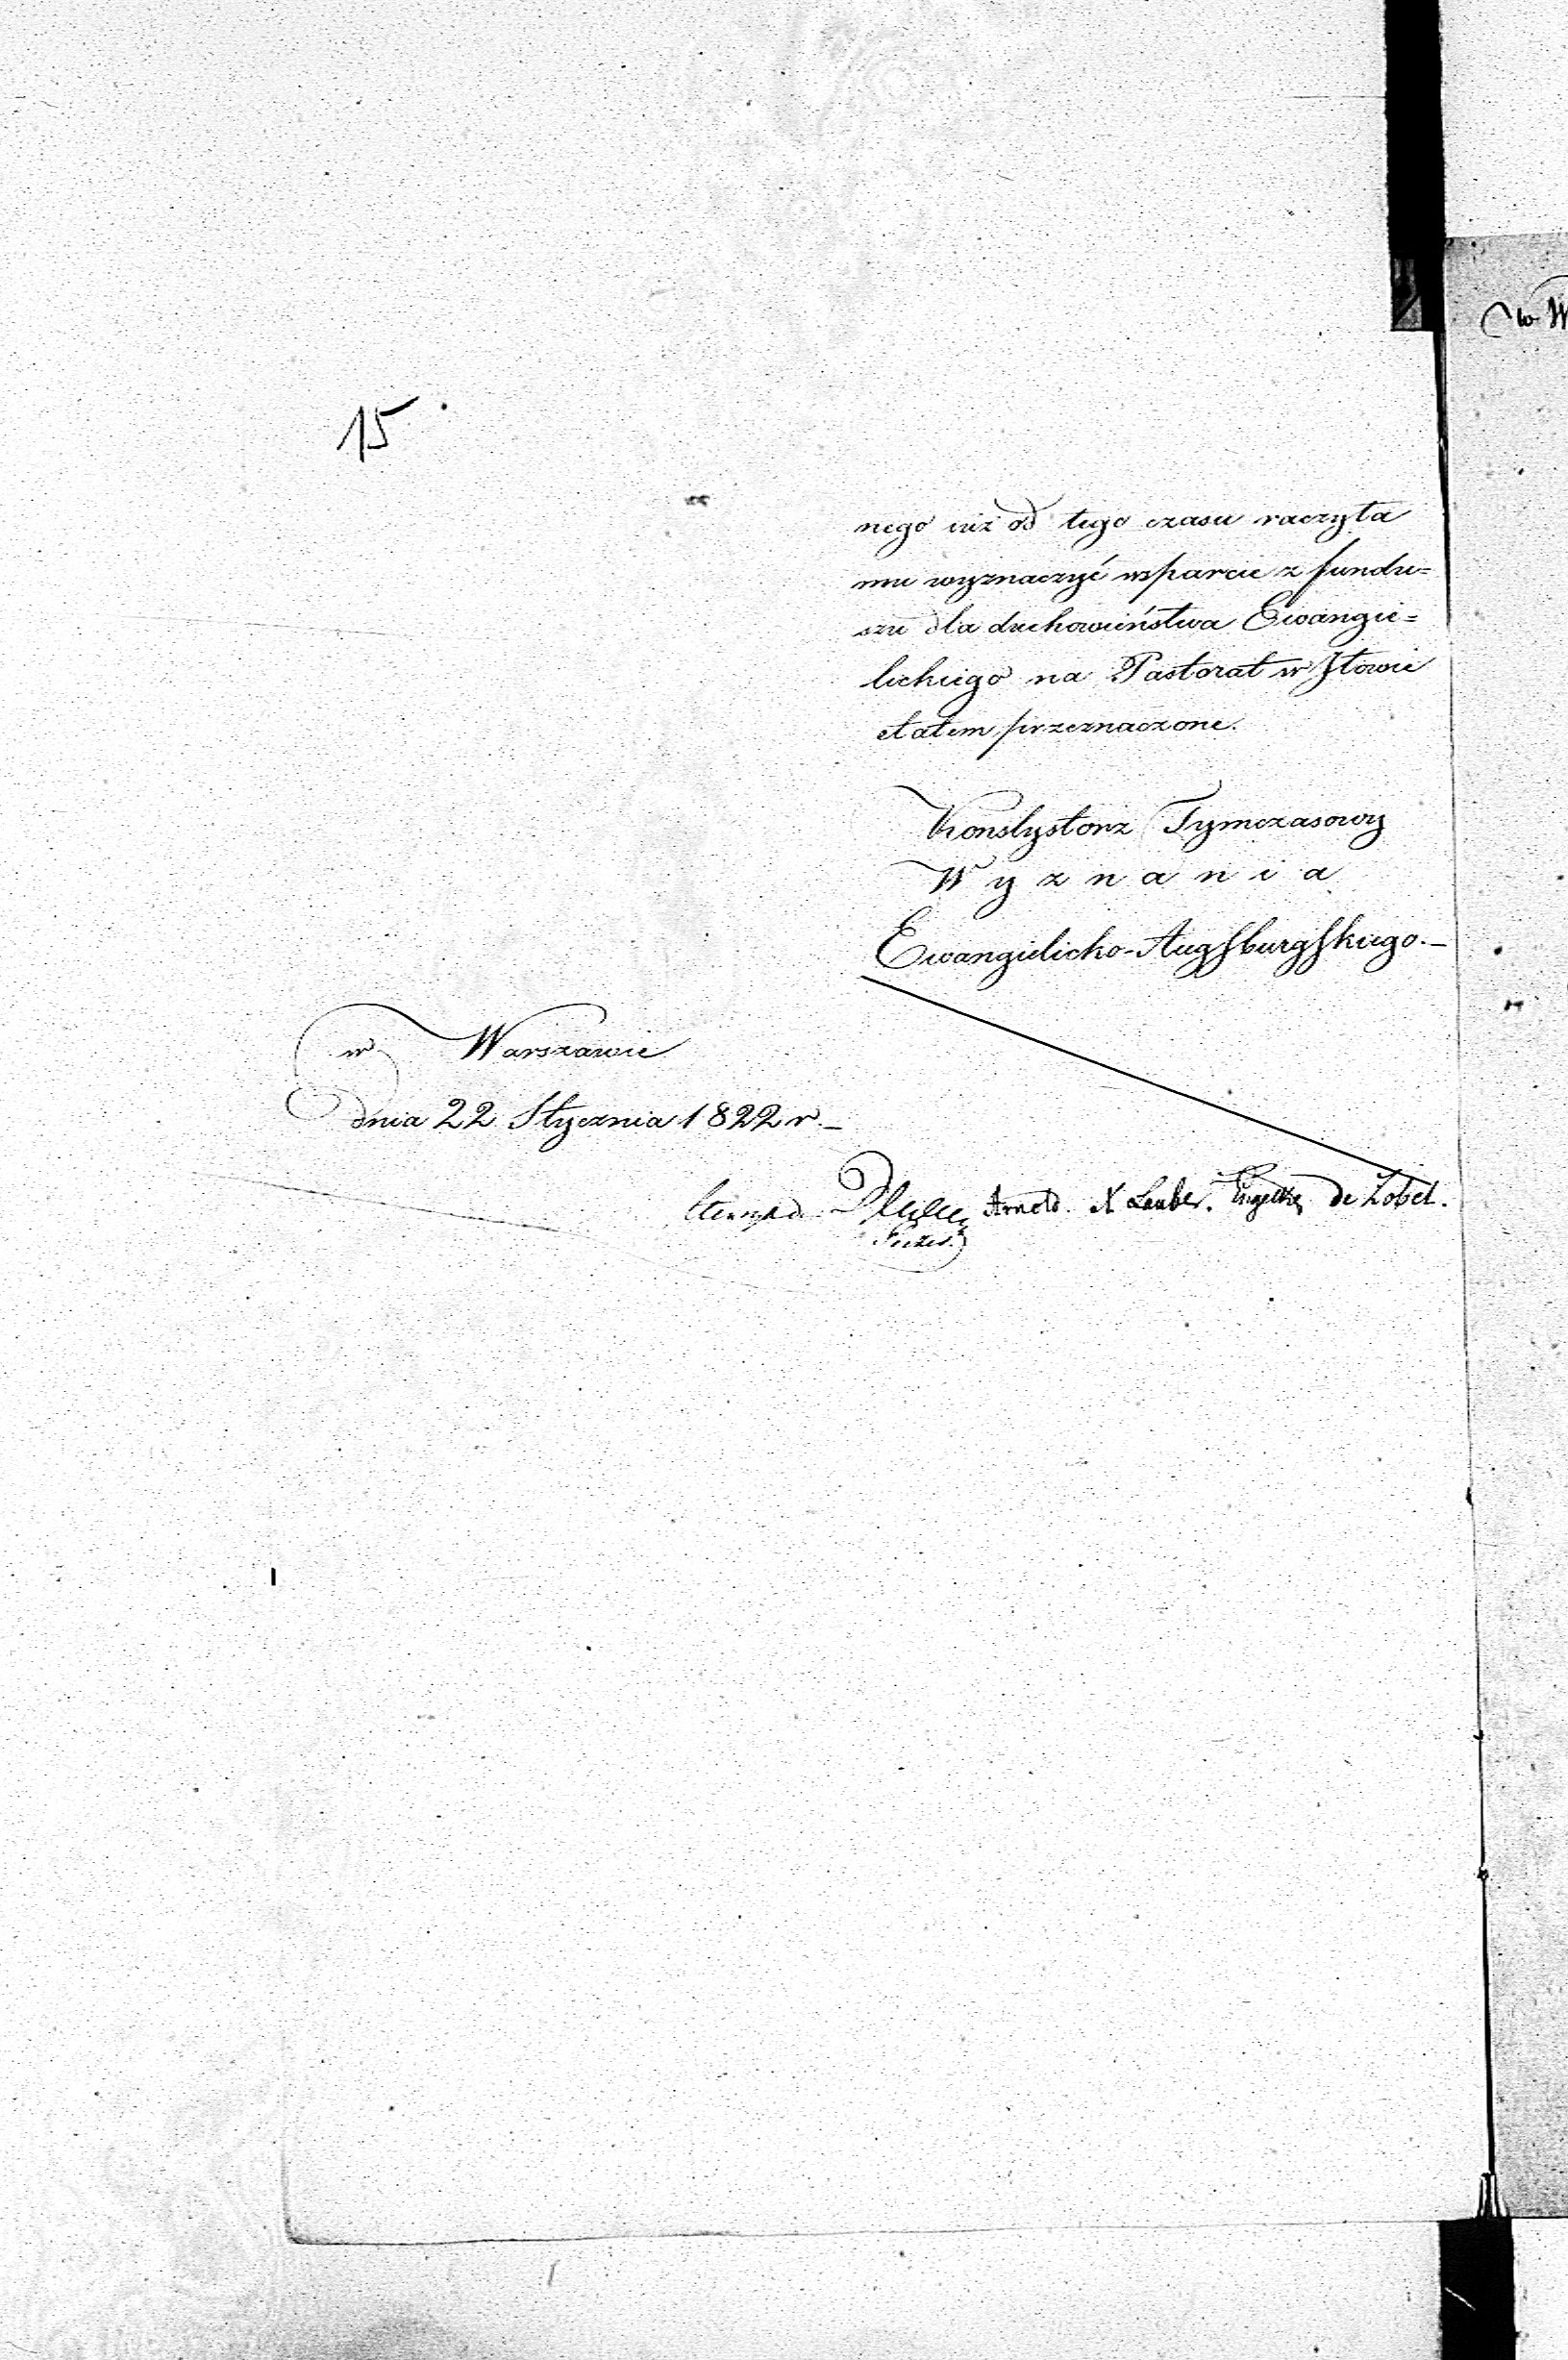 15
nego iuż od tego czasu raczyła
mu wyznaczyć wsparcie z fundu=
szu dla duchowieństwa Ewangie=
lickiego na Pastorat w Iłowie
etatem przeznaczone.
Konsystorz Tymczasowy
Wyznania
Ewangielicko-Augsburgskiego.—
w Warszawie
dnia 22 Stycznia 1822 r.—
Arnold. X Lauber. de Zobel.